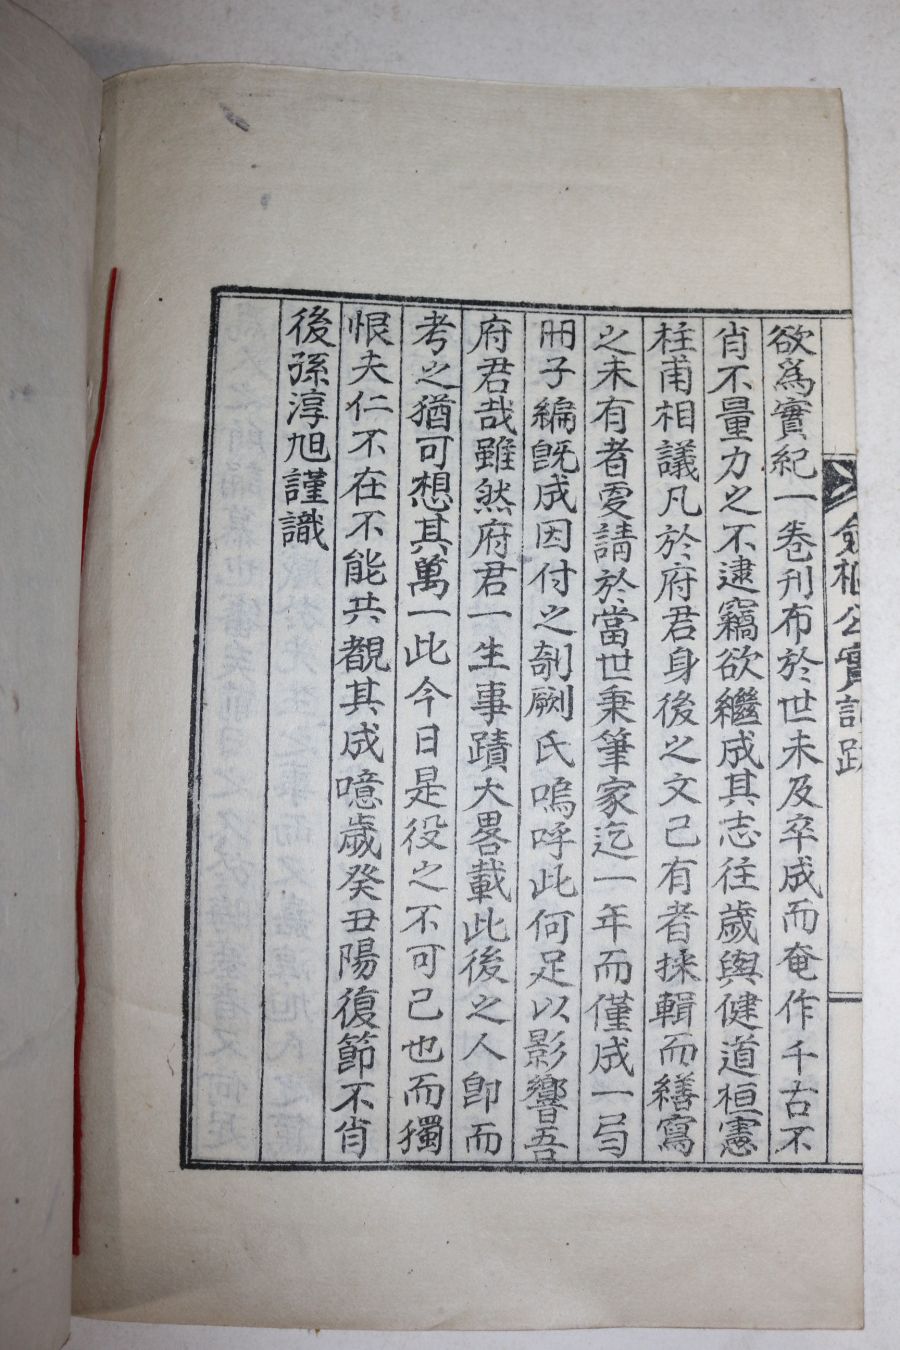 公實記跋
欲爲實紀一卷刋布於世未及卒成而奄作千古不
肖不量力之不逮竊欲繼成其志往歲與健道桓憲
柱甫相議凡於府君身後之文已有者採輯而繕寫
之未有者更請於當世秉筆家迄一年而僅成一弓
冊子編旣成因付之剞劂氏嗚呼此何足以影響吾
府君哉雖然府君一生事蹟大畧載此後之人卽而
考之猶可想其萬一此今日是役之不可已也而獨
恨夫仁不在不能共覩其成噫歲癸丑陽復節不肖
後孫淳旭謹識